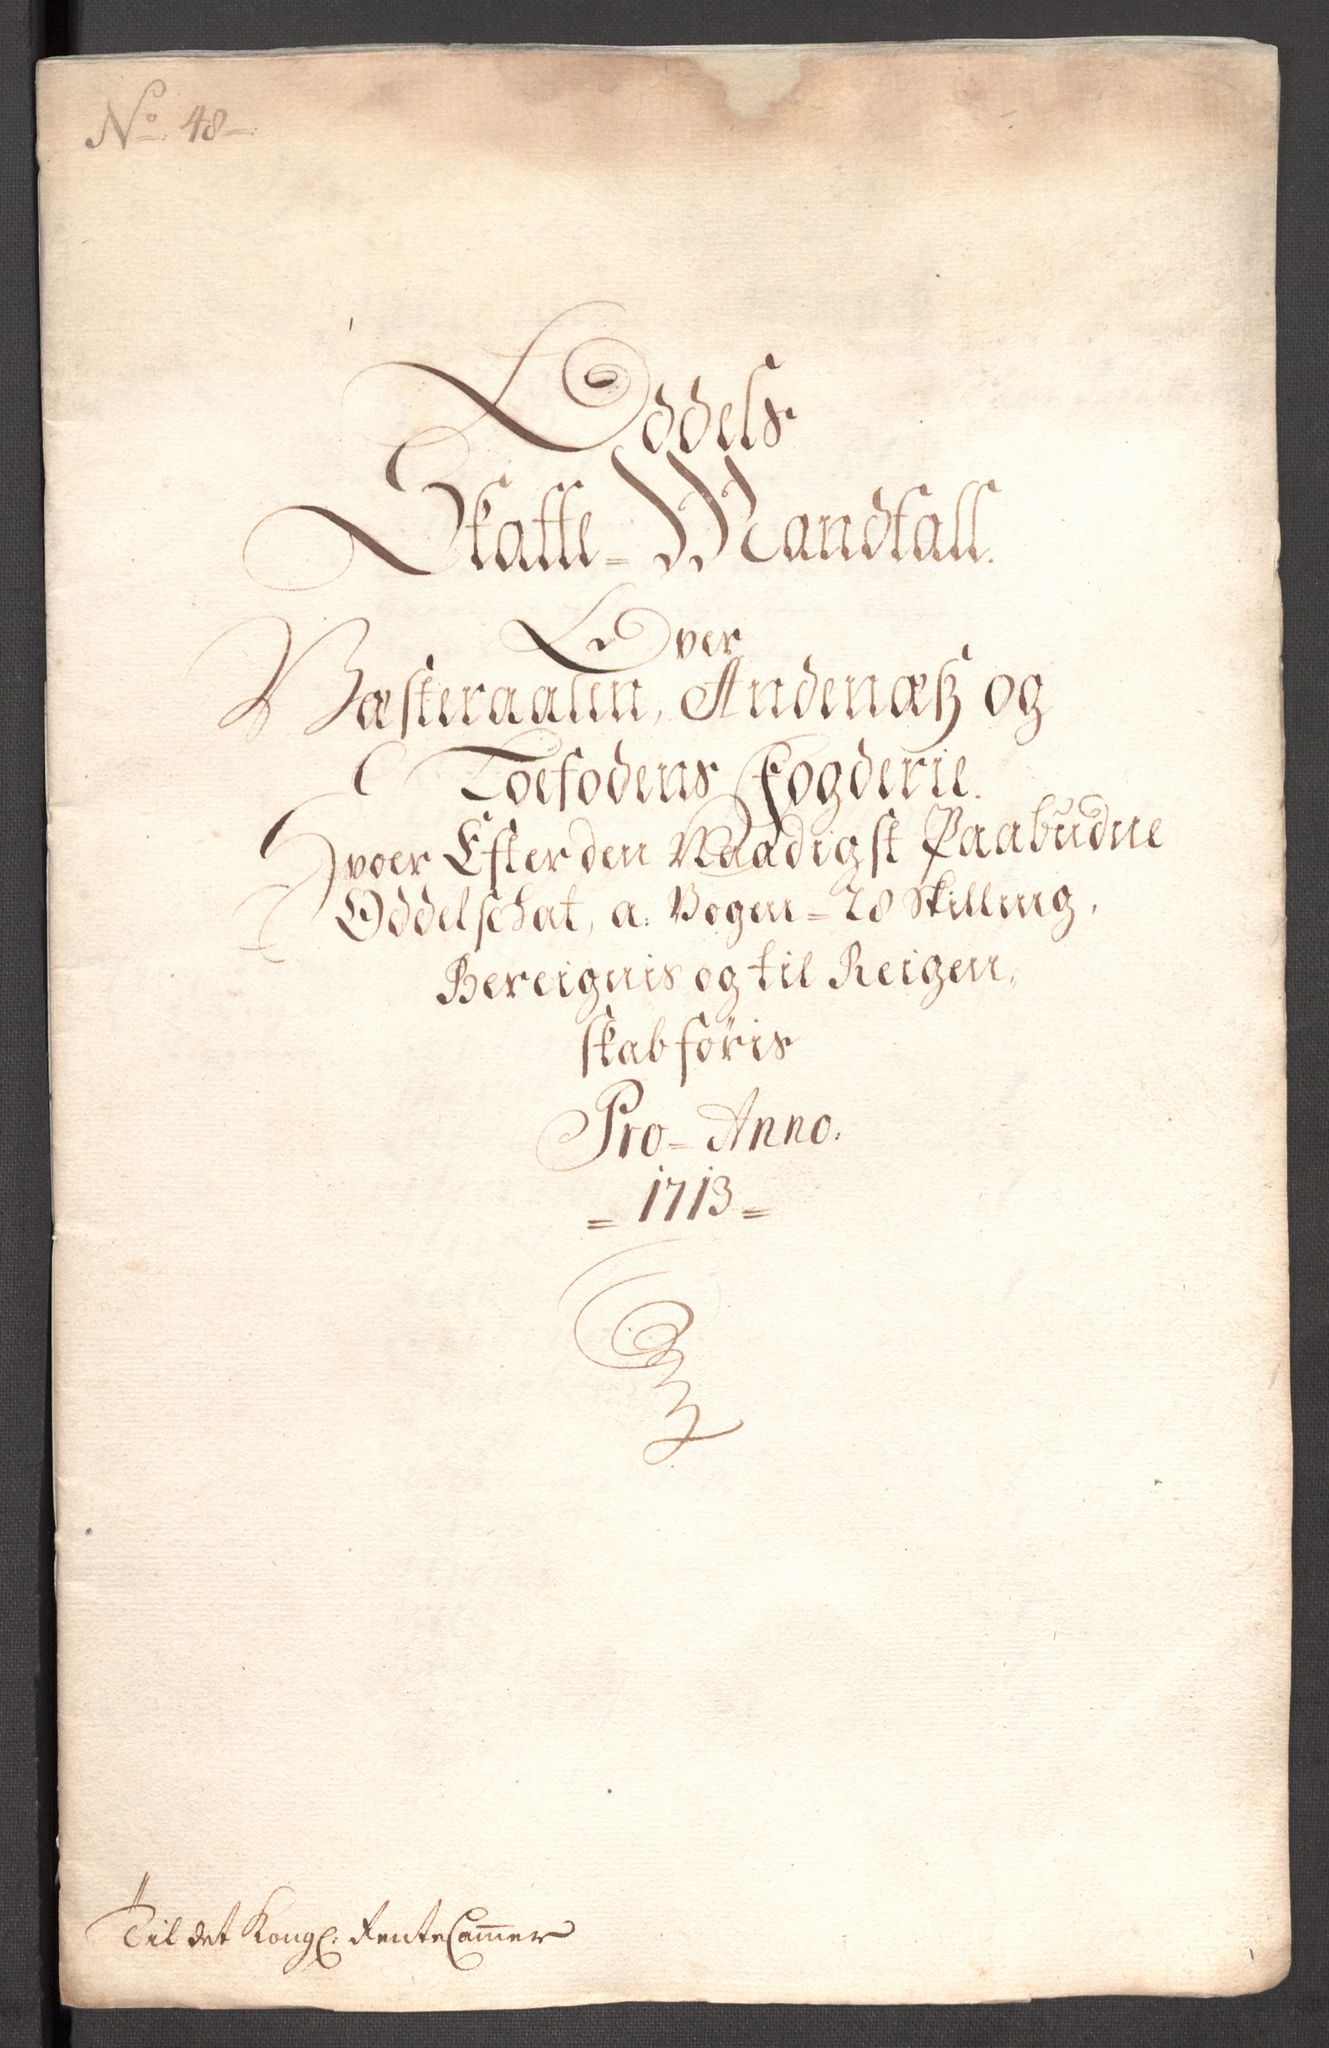 No 48
Oddels
Skatte = Mandtall.
Over
Væsteraalen, Andenæß og
Loefodens Fogderie.
Hvoer Efter den Naadigst Paabudne
Oddelschat, a. Vogen = 28 Skilling,
Bereignis og til Reigen,
skab føris
Pro = Anno.
= 1713 =
Til det Kongl: RenteCam̄er